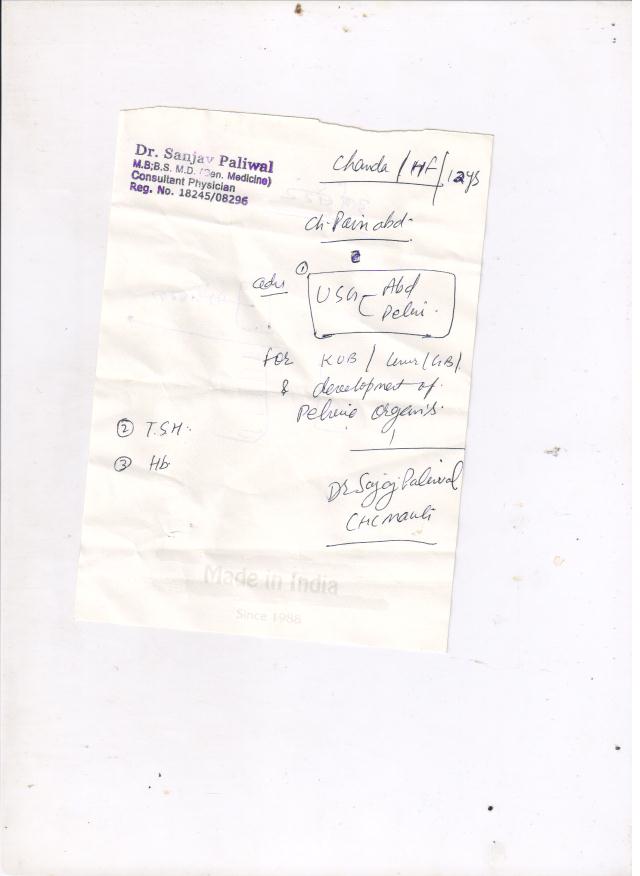 Dr. Sanjay Paliwal
M.B;B.S. M.D. (Gen. Medicine)
Consultant Physician
Reg. No. 18245/08296
Chanda / HF / 12ys
Ch. Pain abd.
adv ① USG Abd
Pelvi.
for KUB / Liver / GB /
& development of
Pelvic organs.
② T.S.H.
③ Hb
Dr Sajay Paliwal
CHC Mavli
Made in India
Since 1988